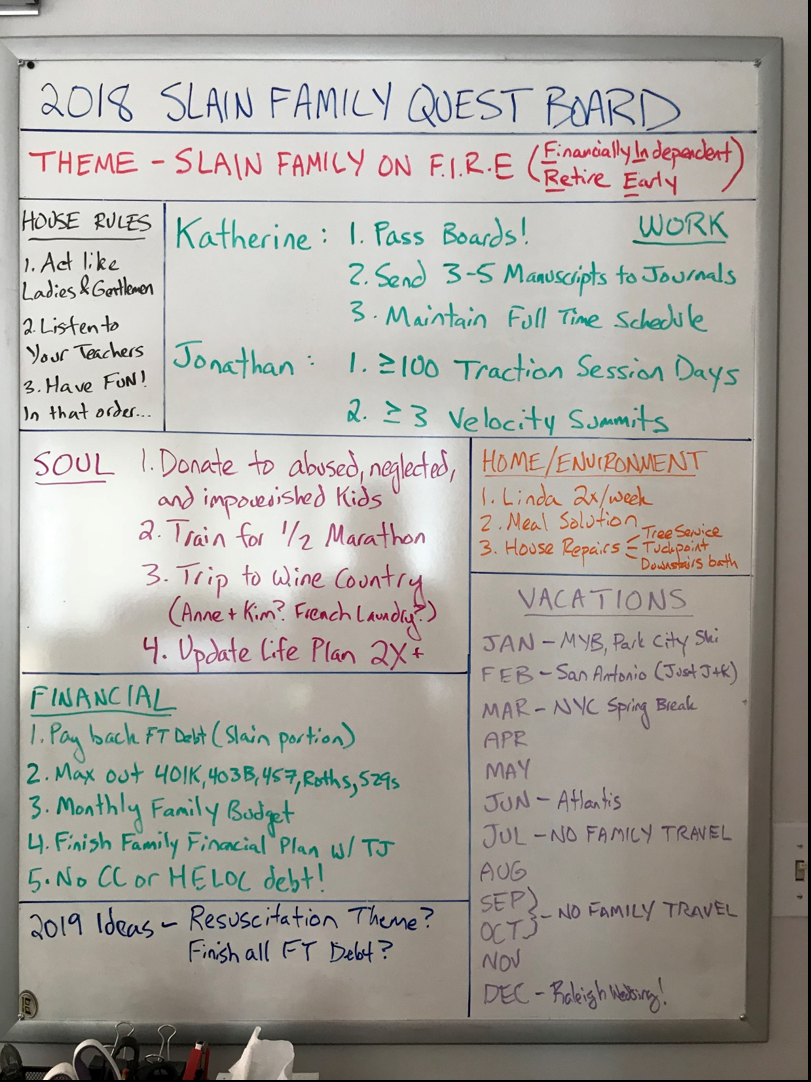 2018 SLAIN FAMILY QUEST BOARD
THEME - SLAIN FAMILY ON F.I.R.E (Financially Independent
Retire Early)
HOUSE RULES
1. Act like
Ladies & Gentlemen
2. Listen to
Your Teachers
3. Have FUN!
In that order...
WORK
Katherine: 1. Pass Boards!
2. Send 3-5 Manuscripts to Journals
3. Maintain Full Time Schedule
Jonathan: 1. ≥100 Traction Session Days
2. ≥3 Velocity Summits
SOUL 1. Donate to abused, neglected,
and impoverished Kids
2. Train for 1/2 Marathon
3. Trip to Wine Country
(Anne + Kim? French Laundry?)
4. Update Life Plan 2X+
HOME/ENVIRONMENT
1. Linda 2x/week
2. Meal Solution
3. House Repairs - Tree Service
Tuckpoint
Downstairs bath
VACATIONS
JAN - MYB, Park City Ski
FEB - San Antonio (Just J+K)
MAR - NYC Spring Break
APR
MAY
JUN - Atlantis
JUL - NO FAMILY TRAVEL
AUG
SEP
OCT} - NO FAMILY TRAVEL
NOV
DEC - Raleigh Wedding!
FINANCIAL
1. Pay back FT Debt (Slain portion)
2. Max out 401K, 403B, 457, Roths, 529s
3. Monthly Family Budget
4. Finish Family Financial Plan w/ TJ
5. No CC or HELOC debt!
2019 Ideas - Resuscitation Theme?
Finish all FT Debt?